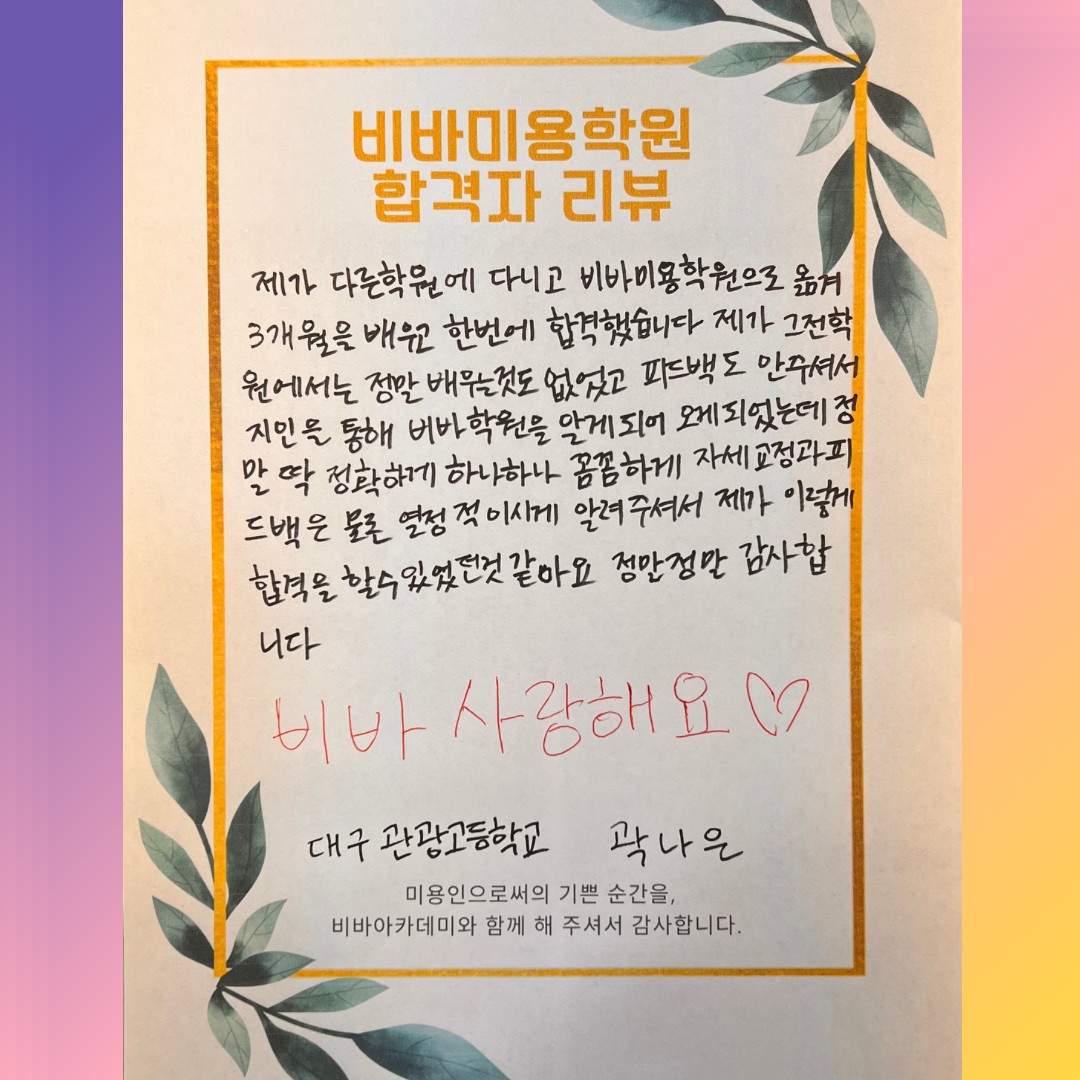 비바미용학원
합격자 리뷰
제가 다른학원에 다니고 비바미용학원으로 옮겨
3개월을 배우고 한번에 합격했습니다 제가 그전학
원에서는 정말 배우는것도 없었고 피드백도 안주셔서
지인을 통해 비바학원을 알게되어 오게되었는데 정
말 딱 정확하게 하나하나 꼼꼼하게 자세교정과피
드백은 물론 열정적이시게 알려주셔서 제가 이렇게
합격을 할수있었던것 같아요 정말정말 감사합
니다
비바 사랑해요♡
대구 관광고등학교 곽나은
미용인으로써의 기쁜 순간을,
비바아카데미와 함께 해 주셔서 감사합니다.